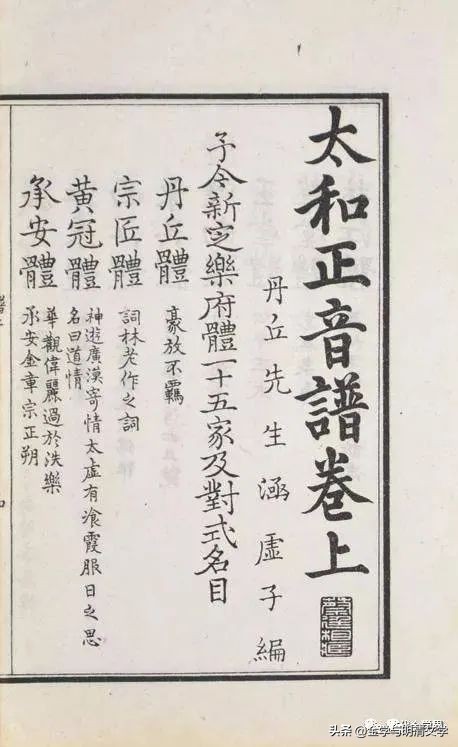 太和正音譜卷上
丹丘先生涵虛子編
予今新㝎樂府體一十五家及對式名目
丹丘體
豪放不羈
宗匠體
詞林老作之詞
黃冠體
神遊廣漠寄情太虛有飡霞服日之思
名曰道情
承安體
華觀偉麗過於泆樂
承安金章宗正朔
头条 @金学与明清文学